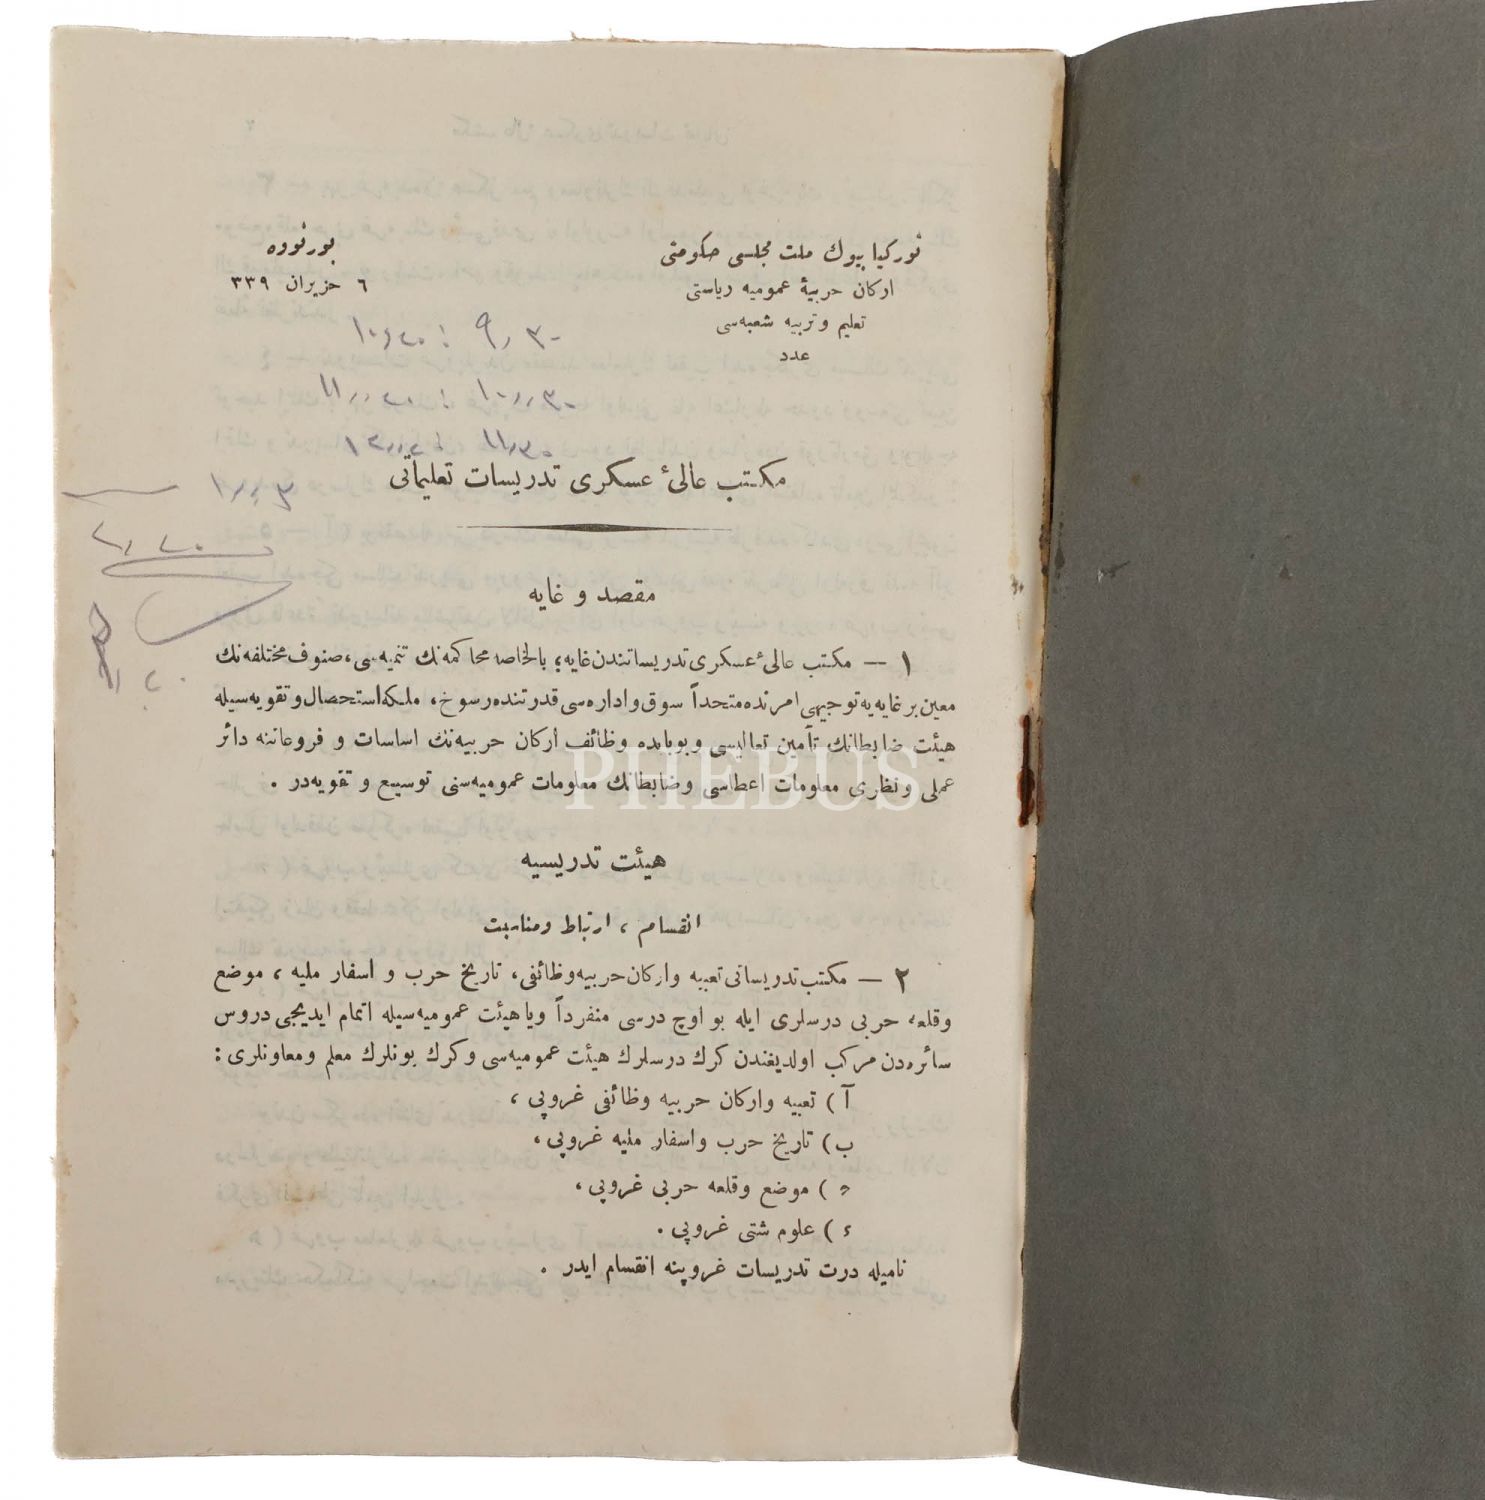 توركيا بيوك ملت مجلسى حكومتى
اركان حربيۀ عموميه رياستى
تعليم وتربيه شعبه‌سى
عدد
بورنووه
٦ حزيران ٣٣٩
مكتب عالئ عسكرى تدريسات تعليماتى
مقصد و غايه
١ — مكتب عالئ عسكرى تدريساتندن غايه؛ بالخاصه محاكمه‌نك تنميه‌سى، صنوف مختلفه‌نك
معين بر غايه‌يه توجيهى امرنده متحداً سوق و اداره‌سى قدرتنده رسوخ، ملكه استحصال و تقويه‌سيله
هيئت ضابطانك تأمين تعاليسى و بوبابده وظائف اركان حربيه‌نك اساسات و فروعاتنه دائر
عملى و نظرى معلومات اعطاسى و ضابطانك معلومات عموميه‌سنى توسيع و تقويه‌در .
هيئت تدريسيه
انقسام ، ارتباط ومناسبت
٢ — مكتب تدريساتى تعبيه واركان حربيه وظائفى، تاريخ حرب و اسفار مليه ، موضع
وقلعه حربى درسلرى ايله بو اوچ درسى منفرداً ويا هيئت عموميه‌سيله اتمام ايديجى دروس
سائره‌دن مركب اولديغندن كرك درسلرك هيئت عموميه‌سى وكرك بونلرك معلم ومعاونلرى :
آ ) تعبيه واركان حربيه وظائفى غروپى ،
ب) تاريخ حرب واسفار مليه غروپى،
ح ) موضع وقلعه حربى غروپى ،
ء ) علوم شتى غروپى .
ناميله درت تدريسات غروپنه انقسام ايدر .
PHEBUS